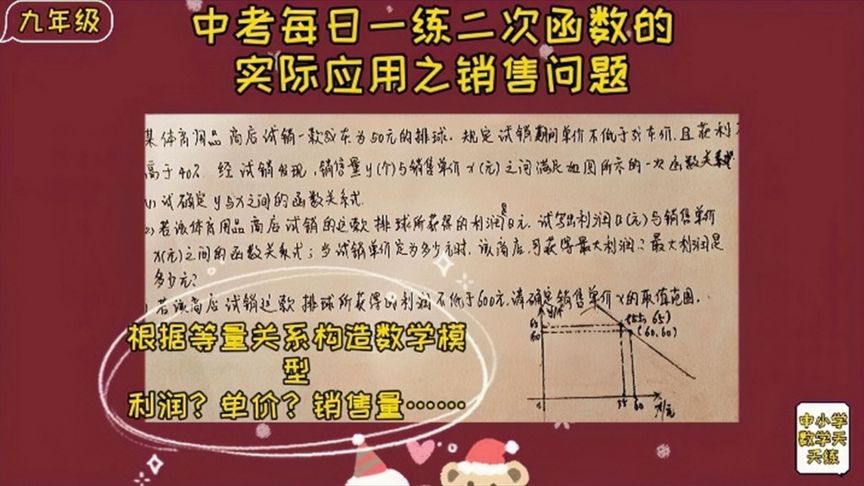 九年级
中考每日一练二次函数的
实际应用之销售问题
某体育用品商店试销一款成本为50元的排球,规定试销期间单价不低于成本价,且获利不
高于40%.经试销发现,销售量y(个)与销售单价x(元)之间满足如图所示的一次函数关系式
(1)试确定y与x之间的函数关系式
(2)若该体育用品商店试销的这款排球所获得的利润Q元,试写出利润Q(元)与销售单价
x(元)之间的函数关系式;当试销单价定为多少元时,该商店可获得最大利润?最大利润是
多少元?
若该商店试销这款排球所获得的利润不低于600元,请确定销售单价x的取值范围.
y/个
(55,65)
65
(60,60)
60
根据等量关系构造数学模
型
利润?单价?销售量……
55 60 x/元
中小学
数学天
天练